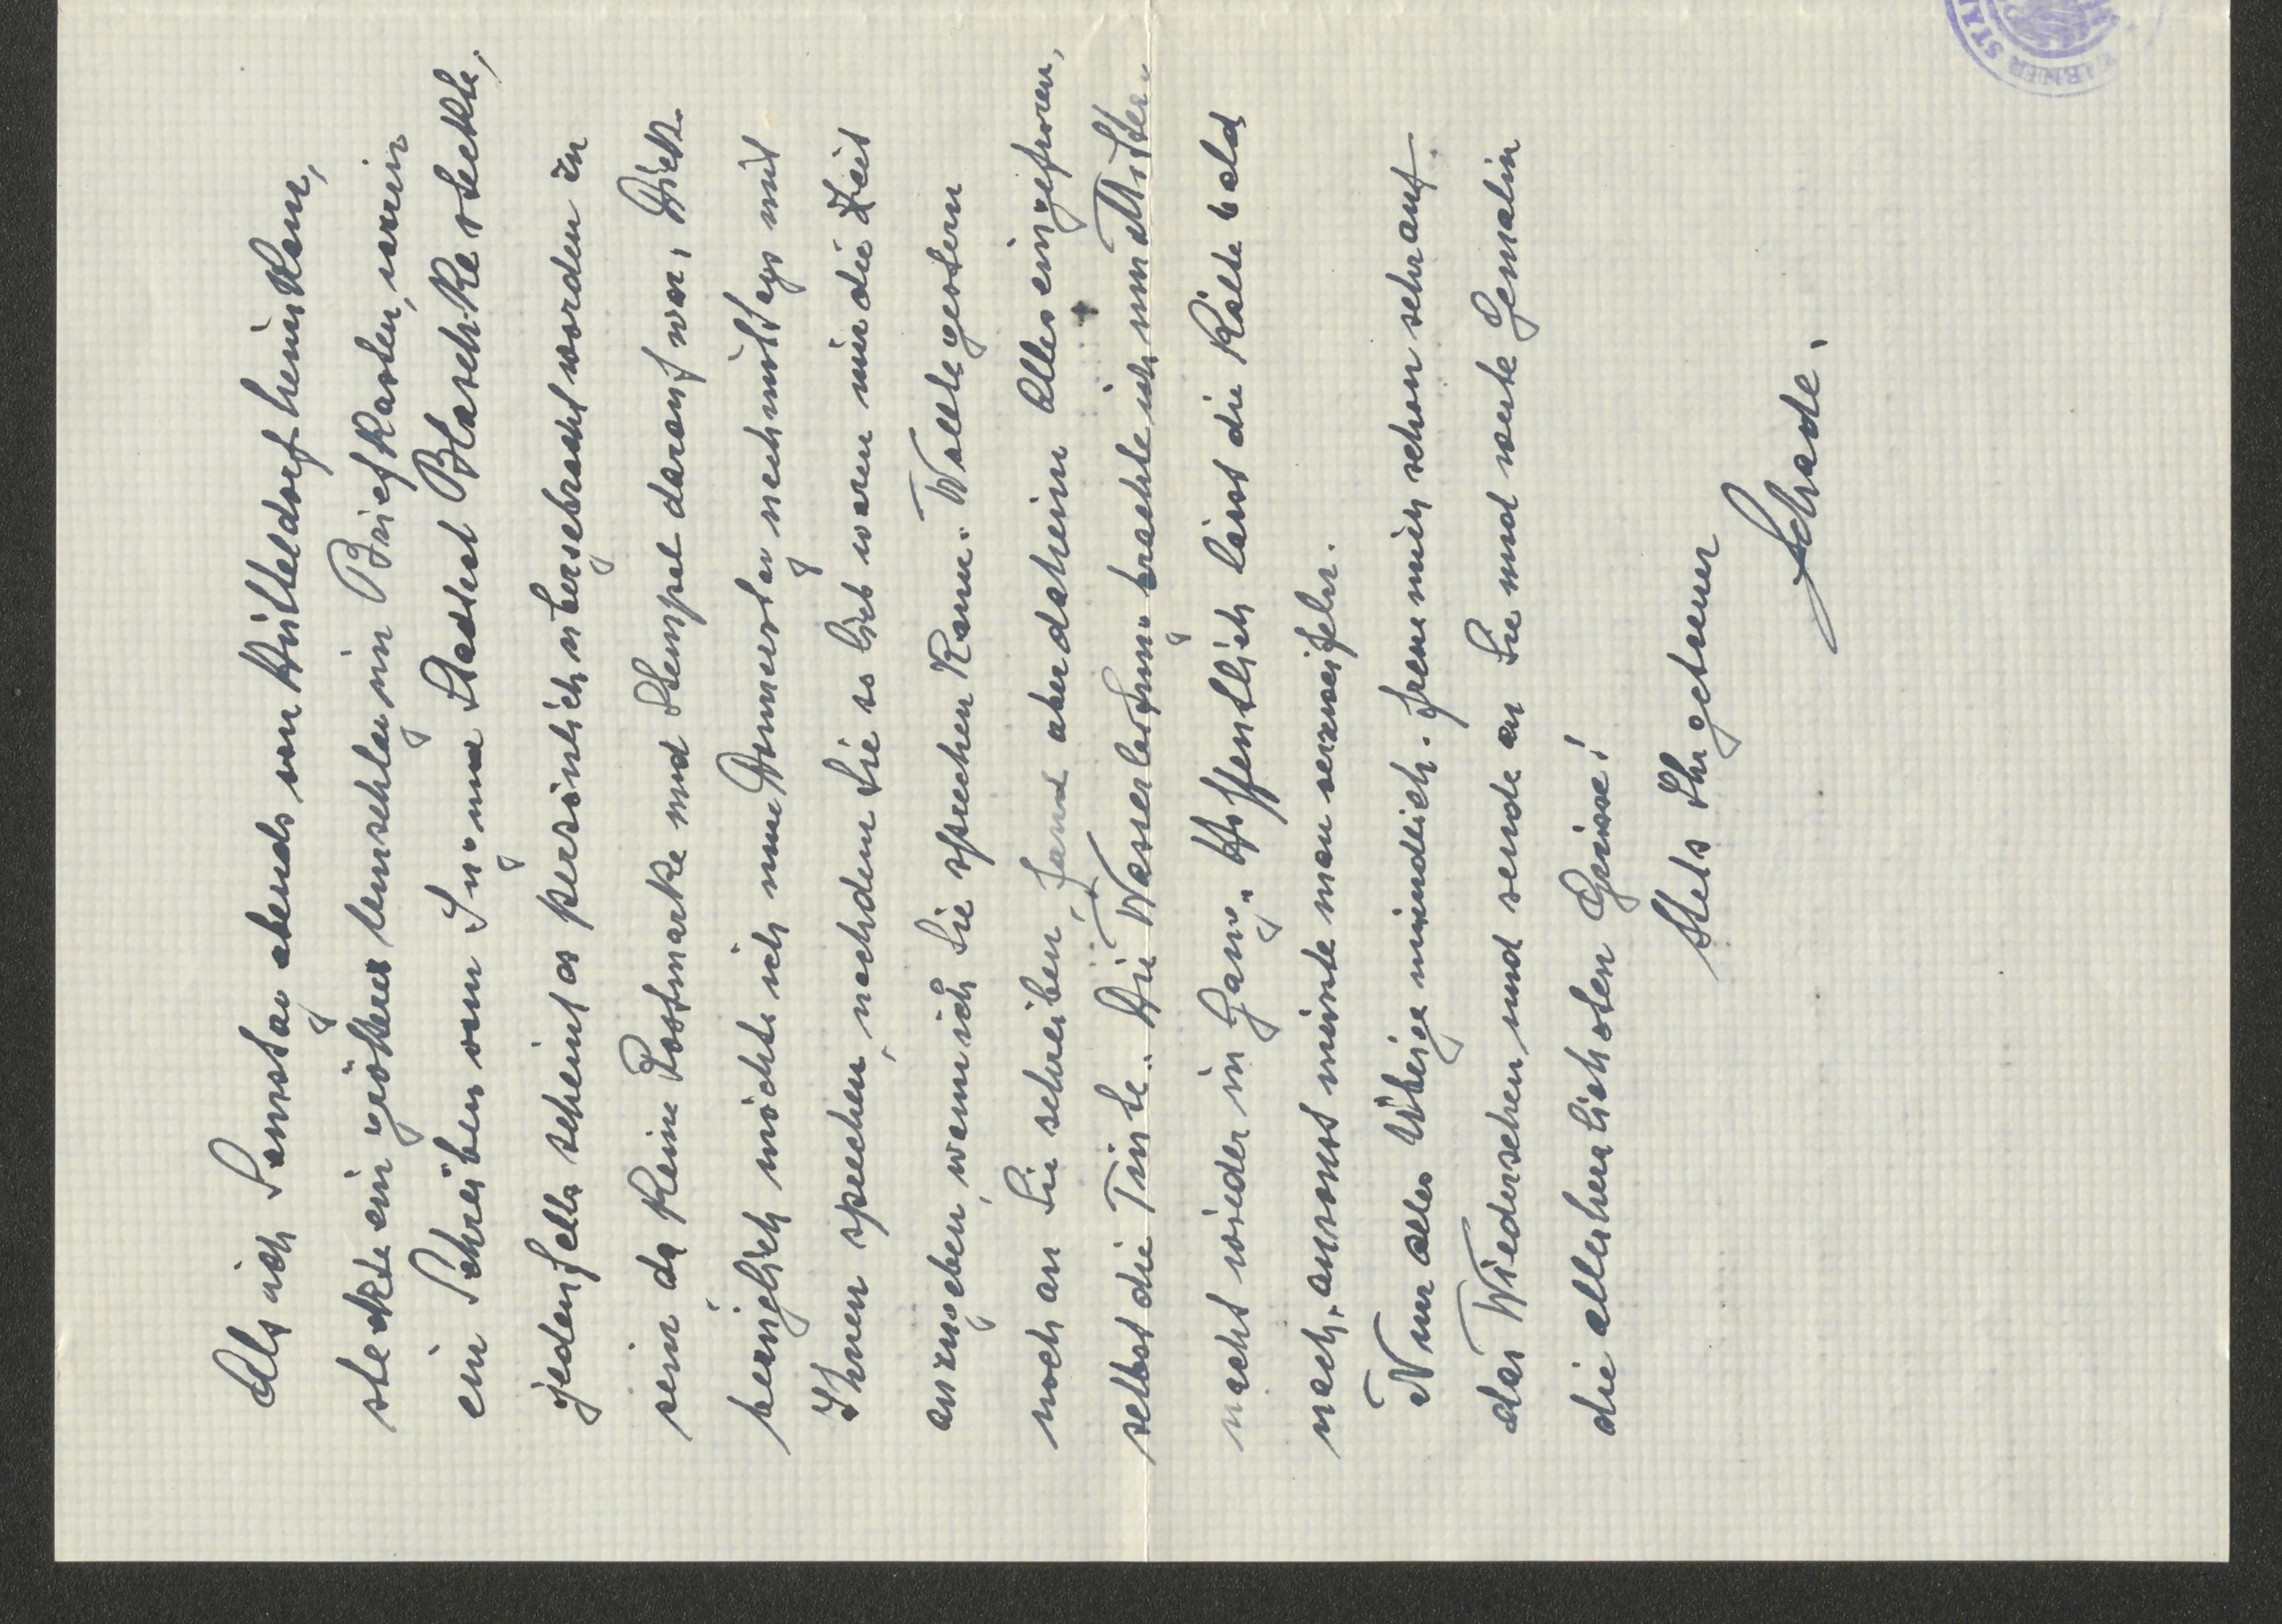 Als ich Samstag abends von Hütteldorf heimkam,
steckte ein größeres Umschlag im Briefkasten, worin
ein Schreiben vom Ing. und Stadtrat Blaschke steckte,
jedenfalls scheint es persönlich übergebracht worden zu
sein da keine Postmarke und Stempel darauf war. Dies-
bezüglich möchte ich nun Donnerstag nachmittags mit
Ihnen sprechen, nachdem Sie so lieb waren mir die Zeit
anzugeben, wann ich Sie sprechen kann. Wollte gestern
noch an Sie schreiben, fand aber daheim Alles eingefroren,
selbst die Tinte. Die Wasserleitung brachte ich um Mitter-
nacht wieder in Gang. Hoffentlich lässt die Kälte bald
nach, ansonst müsste man verzweifeln.
Nun alles Übrige mündlich. Freue mich schon sehr auf
das Wiedersehen und sende an Sie und werte Gemalin
die allerherzlichsten Grüsse!
Stets Ihr getreuer
Schade.